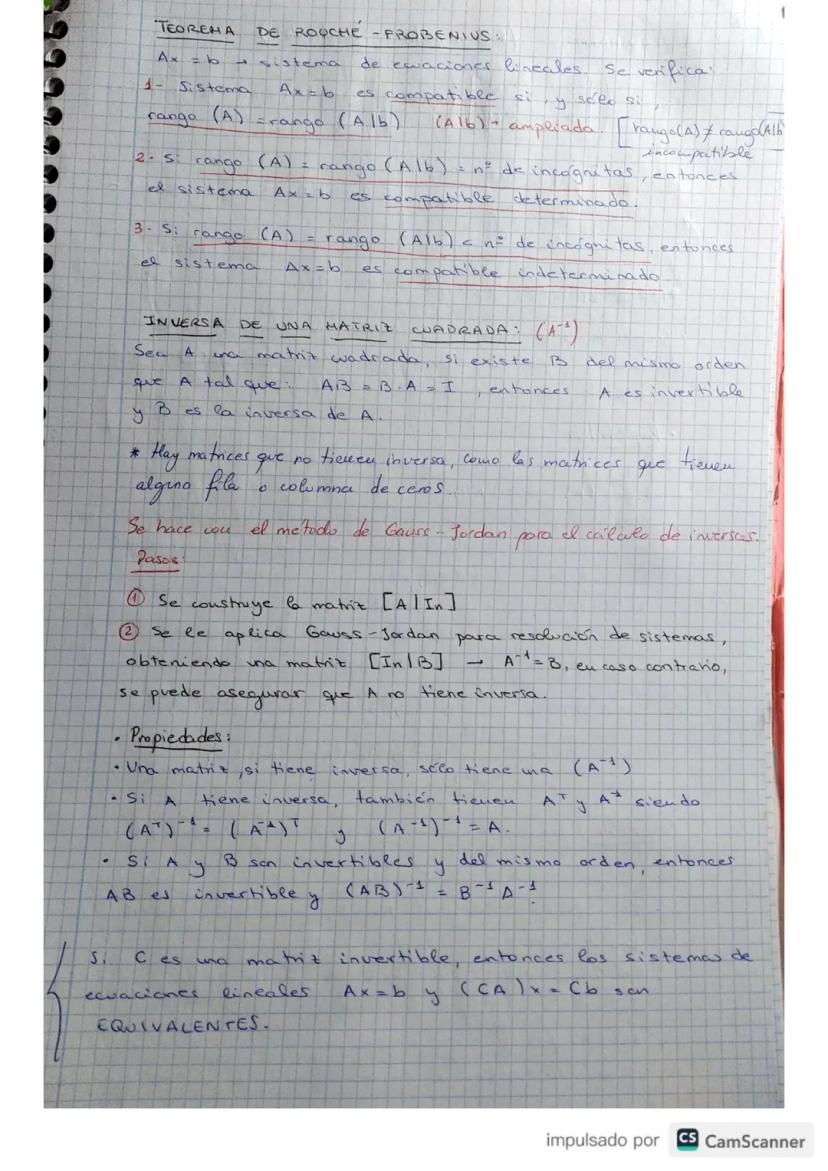 TEOREMA DE ROUCHÉ-FROBENIUS:
Ax = b → sistema de ecuaciones lineales. Se verifica:
1- Sistema Ax=b es compatible si, y sólo si,
rango (A) = rango (A|b) (A|b) → ampliada. [rango(A) ≠ rango(A|b)
incompatible
2- Si rango (A) = rango (A|b) = nº de incógnitas, entonces
el sistema Ax=b es compatible determinado.
3- Si rango (A) = rango (A|b) < nº de incógnitas, entonces
el sistema Ax=b es compatible indeterminado.
INVERSA DE UNA MATRIZ CUADRADA: (A⁻¹)
Sea A una matriz cuadrada, si existe B del mismo orden
que A tal que: AB = B·A = I, entonces A es invertible
y B es la inversa de A.
* Hay matrices que no tienen inversa, como las matrices que tienen
alguna fila o columna de ceros.
Se hace con el método de Gauss-Jordan para el cálculo de inversas.
Pasos:
① Se construye la matriz [A|In]
② Se le aplica Gauss-Jordan para resolución de sistemas,
obteniendo una matriz [In|B] → A⁻¹=B, en caso contrario,
se puede asegurar que A no tiene inversa.
• Propiedades:
• Una matriz, si tiene inversa, sólo tiene una (A⁻¹)
• Si A tiene inversa, también tienen Aᵀ y A⁻¹ siendo
(Aᵀ)⁻¹ = (A⁻¹)ᵀ y (A⁻¹)⁻¹ = A.
• Si A y B son invertibles y del mismo orden, entonces
AB es invertible y (AB)⁻¹ = B⁻¹A⁻¹.
Si C es una matriz invertible, entonces los sistemas de
ecuaciones lineales Ax=b y (CA)x = Cb son
EQUIVALENTES.
impulsado por CS CamScanner